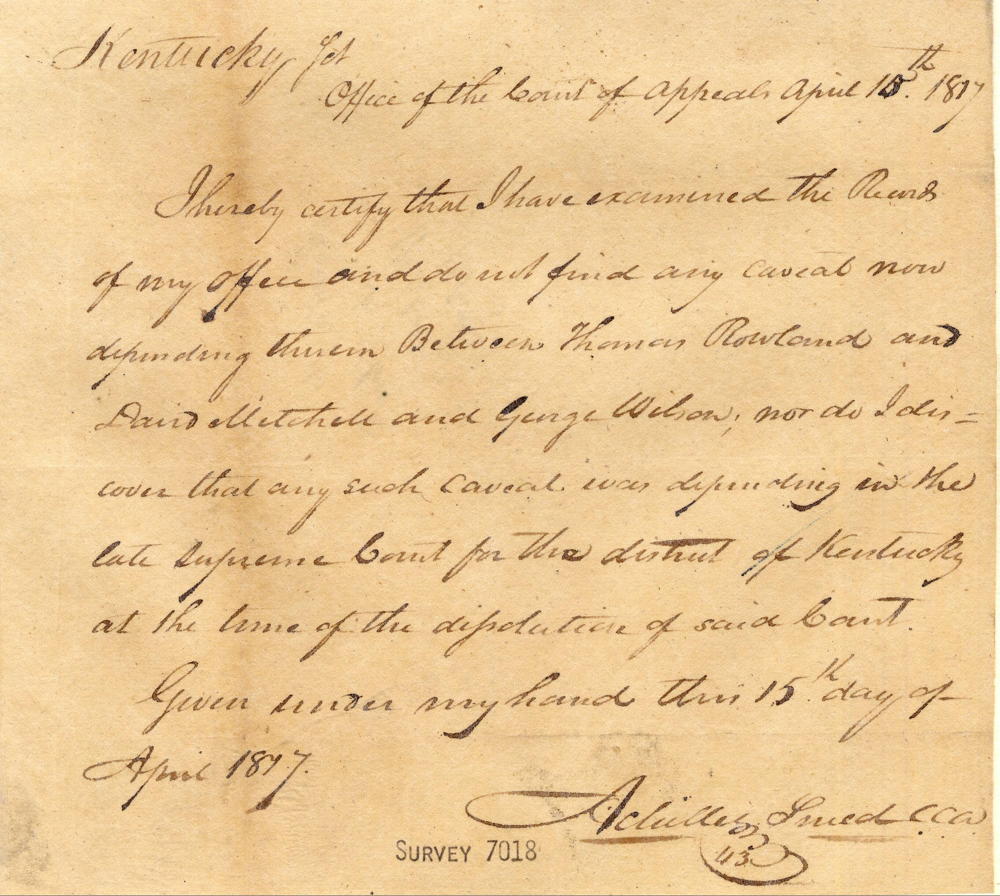 Kentucky Sct
Office of the Court of Appeals April 15th. 1817
I hereby certify that I have examined the Records
of my office and do not find any caveat now
depending therein Between Thomas Rowland and
David Mitchell and George Wilson; nor do I dis=
cover that any such Caveat was depending in the
late Supreme Court for the district of Kentucky
at the time of the dissolution of said Court.
Given under my hand this 15th day of
April 1817.
Achilles Sneed CCA
SURVEY 7018